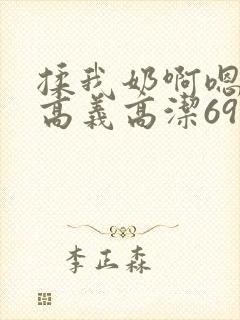 揉我奶啊嗯
高義高潔69
李正森